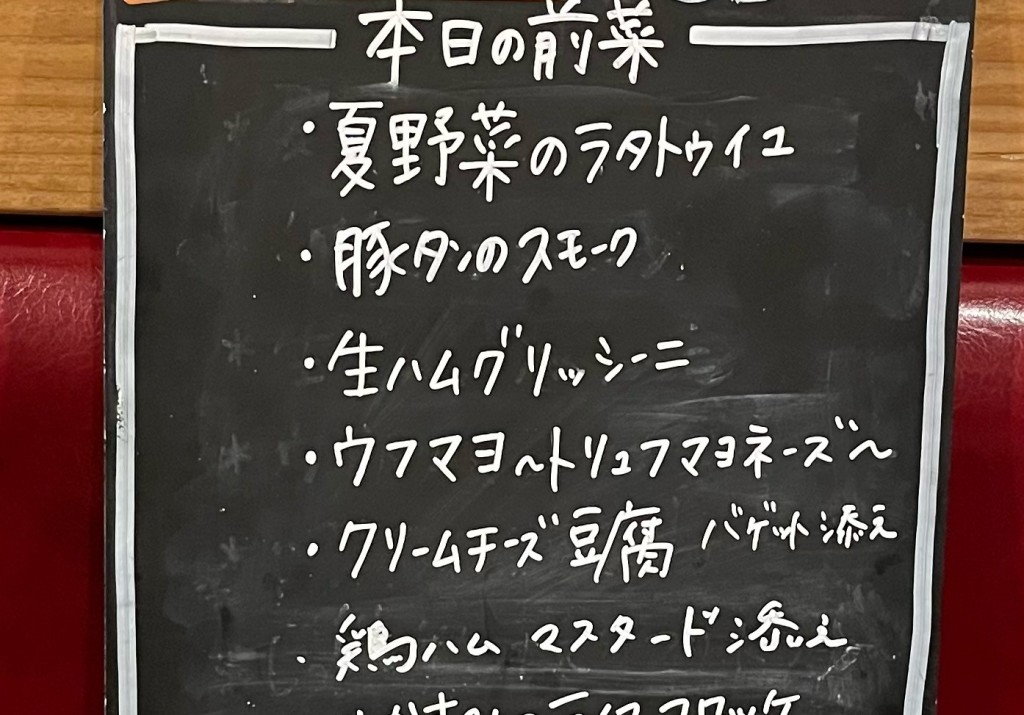 本日の前菜
・夏野菜のラタトゥイユ
・豚タンのスモーク
・生ハムグリッシーニ
・ウフマヨ〜トリュフマヨネーズ〜
・クリームチーズ豆腐 バゲット添え
・鶏ハム マスタード添え